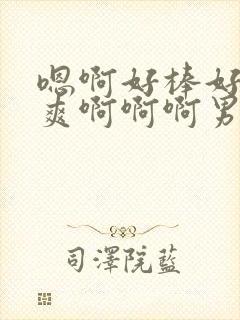 嗯啊好棒好
爽啊啊啊男
司澤院藍